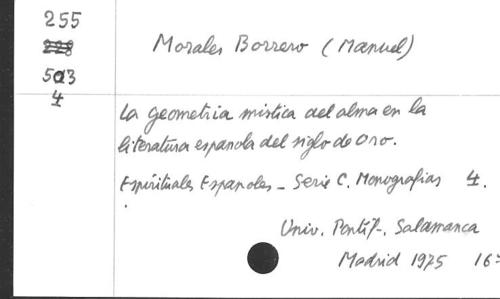 255
228
503
4
Morales Borrero (Manuel)
La geometria mistica del alma en la
literatura española del siglo de Oro.
Espirituales Españoles - Serie C. Monografias 4.
Univ. Pontif. Salamanca
Madrid 1975 16